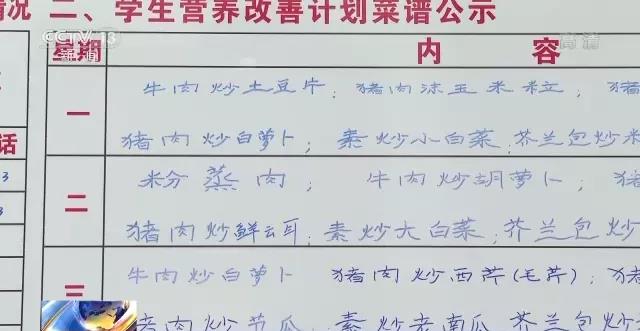 情况 二、学生营养改善计划菜谱公示
CCTV 13
新闻
高清
星期 内 容
一 牛肉炒土豆片; 猪肉沫玉米粒; 猪
话 猪肉炒白萝卜; 素炒小白菜; 芥兰包炒
3 二 粉蒸肉; 牛肉炒胡萝卜; 猪
3 猪肉炒鲜云耳; 素炒大白菜; 芥兰包炒
三 牛肉炒白萝卜 猪肉炒西芹(毛芹); 猪
猪肉炒节瓜 素炒老南瓜 芥兰包